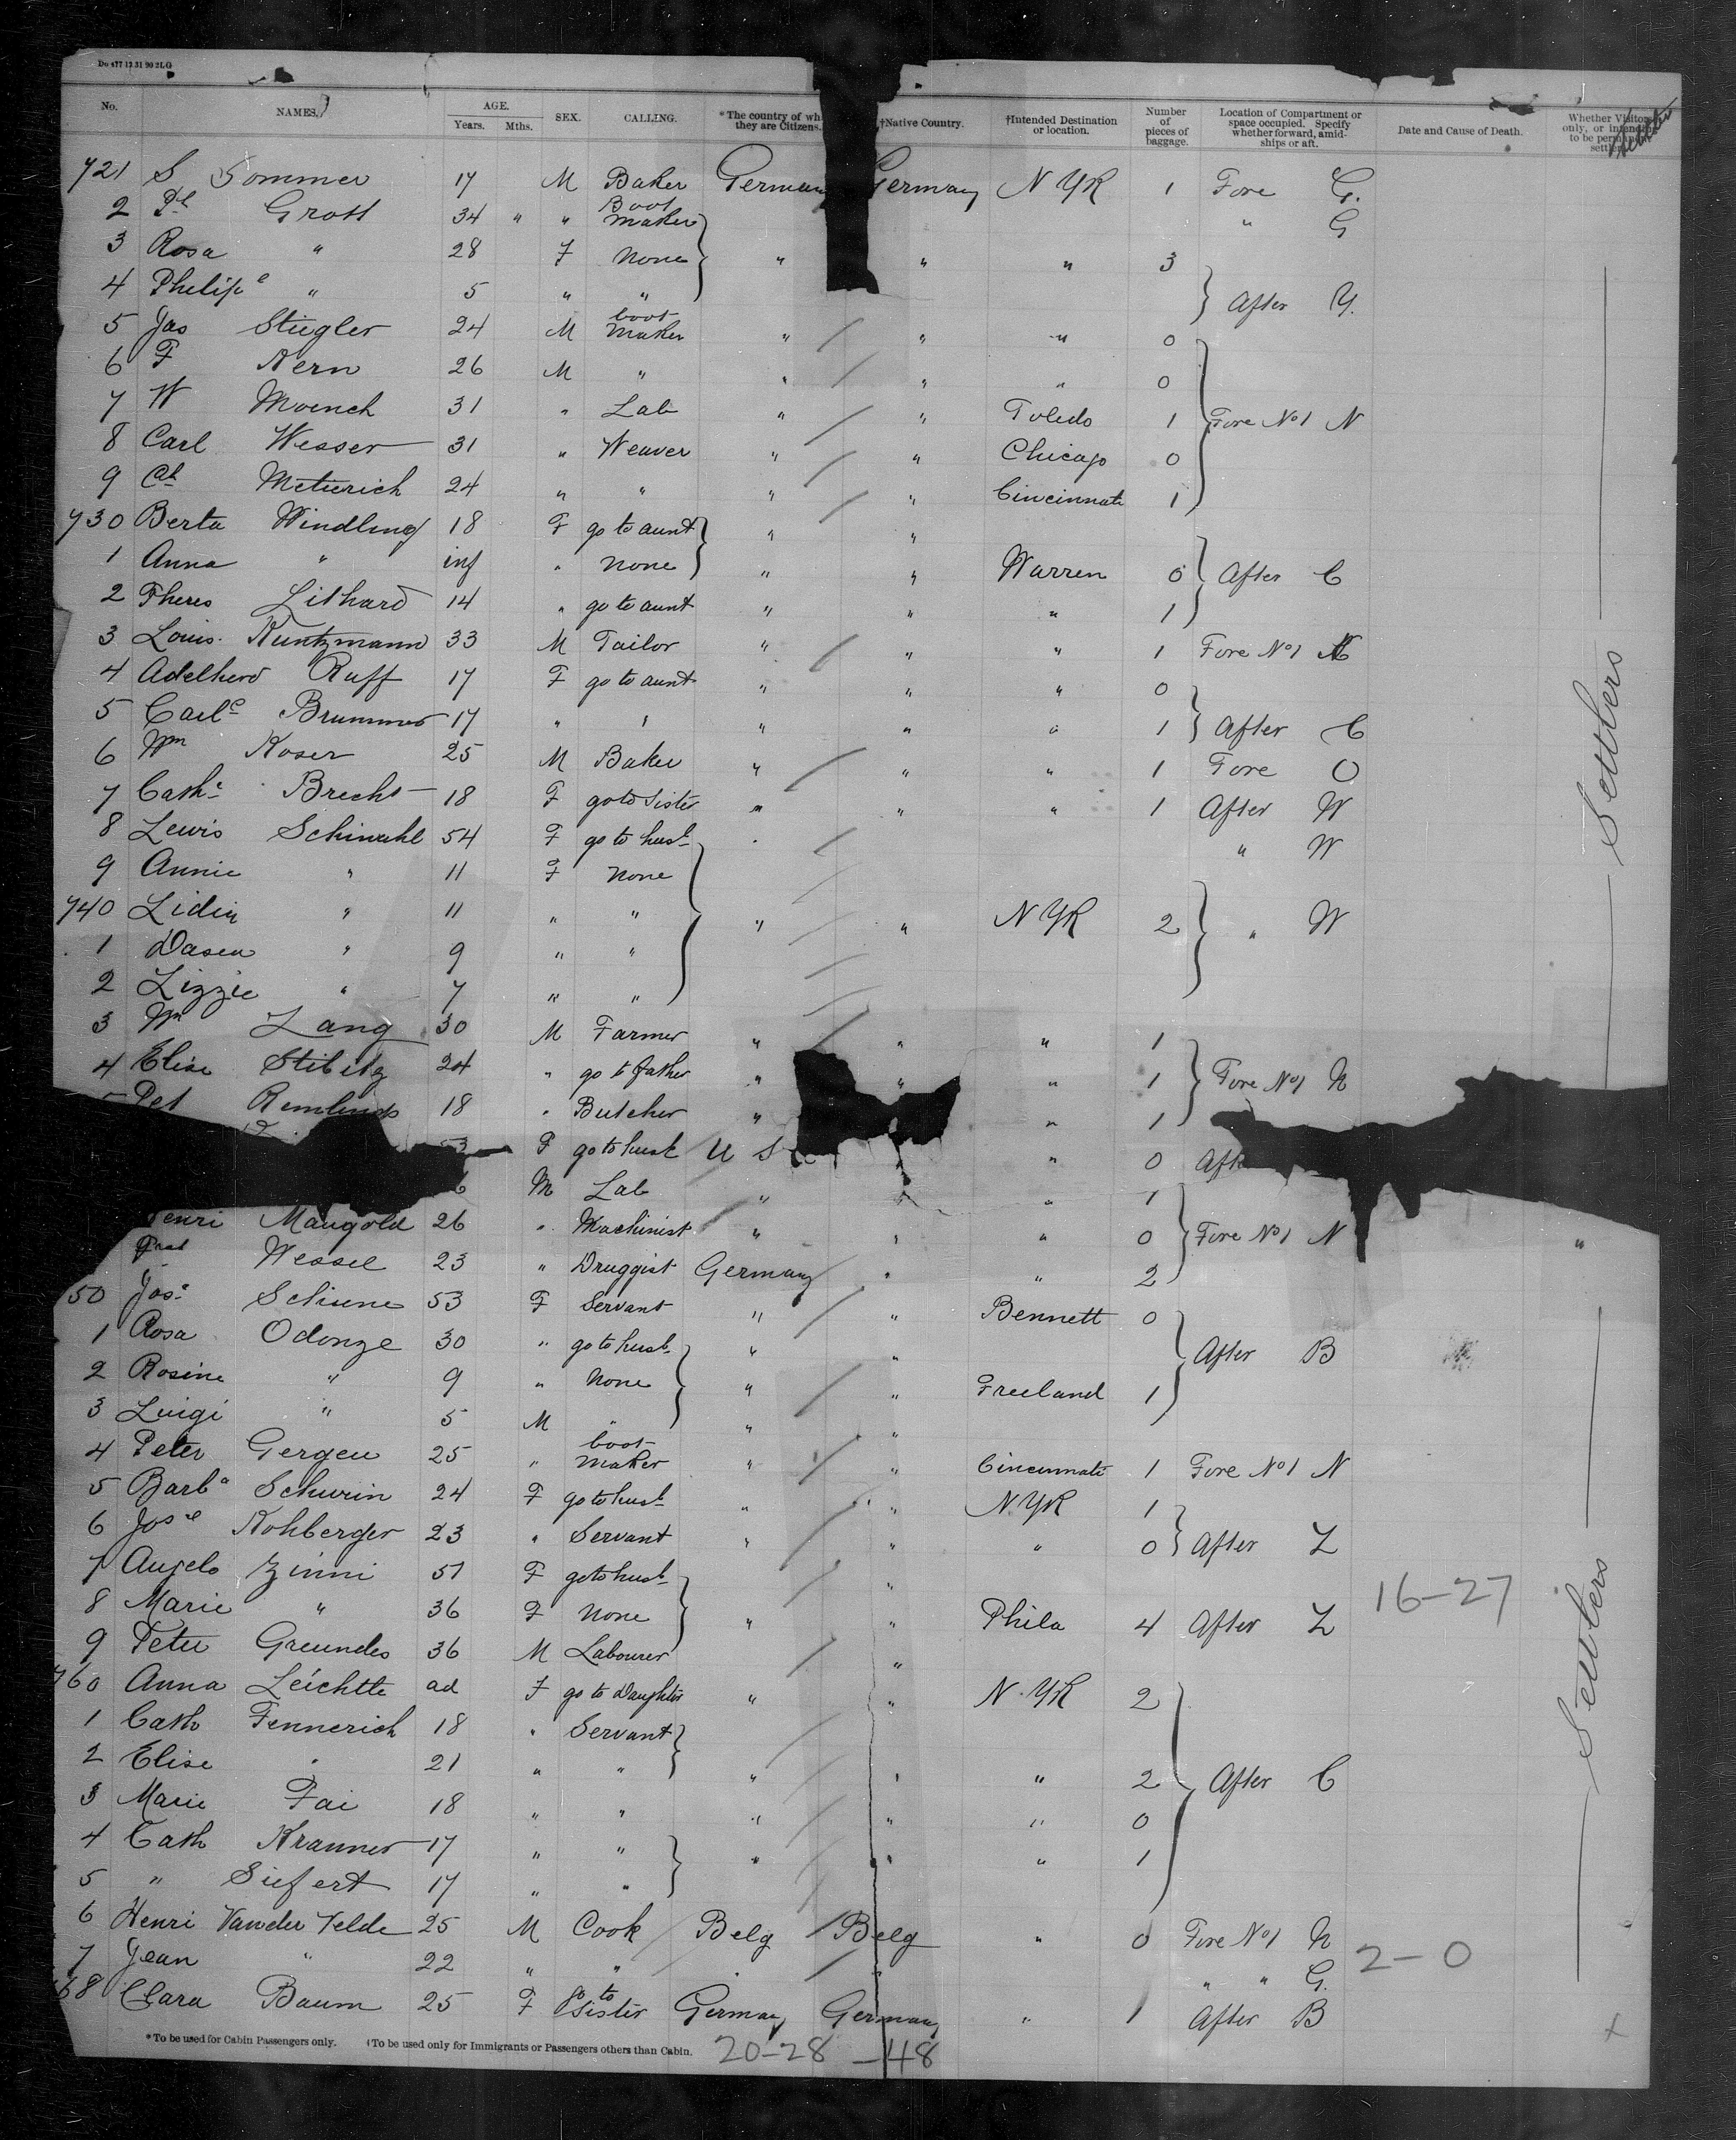 Do 477 12 31 90 2LG
No. NAMES. AGE. Years. Mths. SEX. CALLING. *The country of wh they are Citizens. †Native Country. †Intended Destination or location. Number of pieces of baggage. Location of Compartment or space occupied. Specify whether forward, amidships or aft. Date and Cause of Death. Whether Visitors only, or intending to be permanent settlers
721 S Sommer 17 M Baker Germany Germany N YK 1 Fore G.
2 Grott 34 " " Boot maker " G
3 Rosa " 28 F None " " " 3
4 Philipe " 5 " " After Y.
5 Jas Stiegler 24 M boot maker " " " 0
6 F Kern 26 M " " " " 0
7 W Moench 31 " Lab " " Toledo 1 Fore No 1 N
8 Carl Wesser 31 " Weaver " " Chicago 0
9 Meturich 24 " " " " Cincinnati 1
730 Berta Windling 18 F go to aunt " "
1 Anna " inf " None " " Warren 0 After C
2 Theres Lithard 14 " go to aunt " " " 1
3 Louis Kuntzmann 33 M Tailor " " " 1 Fore No 1
4 Adelheid Ruff 17 F go to aunt " " " 0
5 Carle Brummer 17 " " " " " 1 After C
6 Wm Koser 25 M Baker " " " 1 Fore O
7 Cathe Brecht 18 F go to sister " " " 1 After W
8 Lewis Schiwahl 54 F go to husb " " W
9 Annie " 11 F None
740 Lidia " 11 " " " " N YK 2 " W
1 " 9 " "
2 Lizzie " 7 " "
3 Wm Lang 30 M Farmer " " " 1
4 Elise Stibitz 24 " go to father " " " 1 Fore No 1 N
5 Pet 18 " Butcher " " 1
53 F go to husb U S " 0 Aft
6 M Lab " " " 1
Henri Mangold 26 " Machinist " " " 0 Fore No 1 N
Wessel 23 " Druggist Germany " " 2 "
50 Jose Schiene 53 F Servant " " Bennett 0
1 Rosa Odonze 30 " go to husb " " After B
2 Rosine " 9 " None " " Freeland 1
3 Luigi " 5 M " " "
4 Peter Gergen 25 " boot maker " " Cincinnati 1 Fore No 1 N
5 Barba Schurin 24 F go to husb " " N YK 1
6 Jose Kohberger 23 " Servant " " " 0 After Z
7 Angelo Zinni 51 F go to husb "
8 Marie " 36 F None " " Phila 4 After Z 16-27
9 Peter Greundes 36 M Labourer "
760 Anna Leichtle ad F go to Daughter " " N. YK 2
1 Cath Fennerich 18 " Servant
2 Elise " 21 " " " " " 2 After C
3 Marie Fai 18 " " " " " 0
4 Cath Kranner 17 " " " " " 1
5 " Siefert 17 " "
6 Henri Vander Velde 25 M Cook Belg Belg " 0 Fore No 1 N
7 Jean " 22 " " " " " " G. 2-0
68 Clara Baum 25 F go to Sister Germany Germany " 1 After B
Settlers
Settlers
*To be used for Cabin Passengers only. †To be used only for Immigrants or Passengers others than Cabin. 20-28 -48